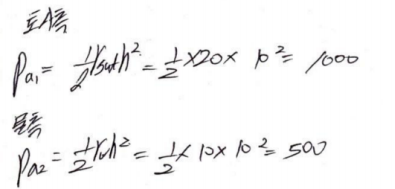 토사측
Pa₁ = ½γsat h² = ½ × 20 × 10² = 1000
물측
Pa₂ = ½γω h² = ½ × 10 × 10² = 500